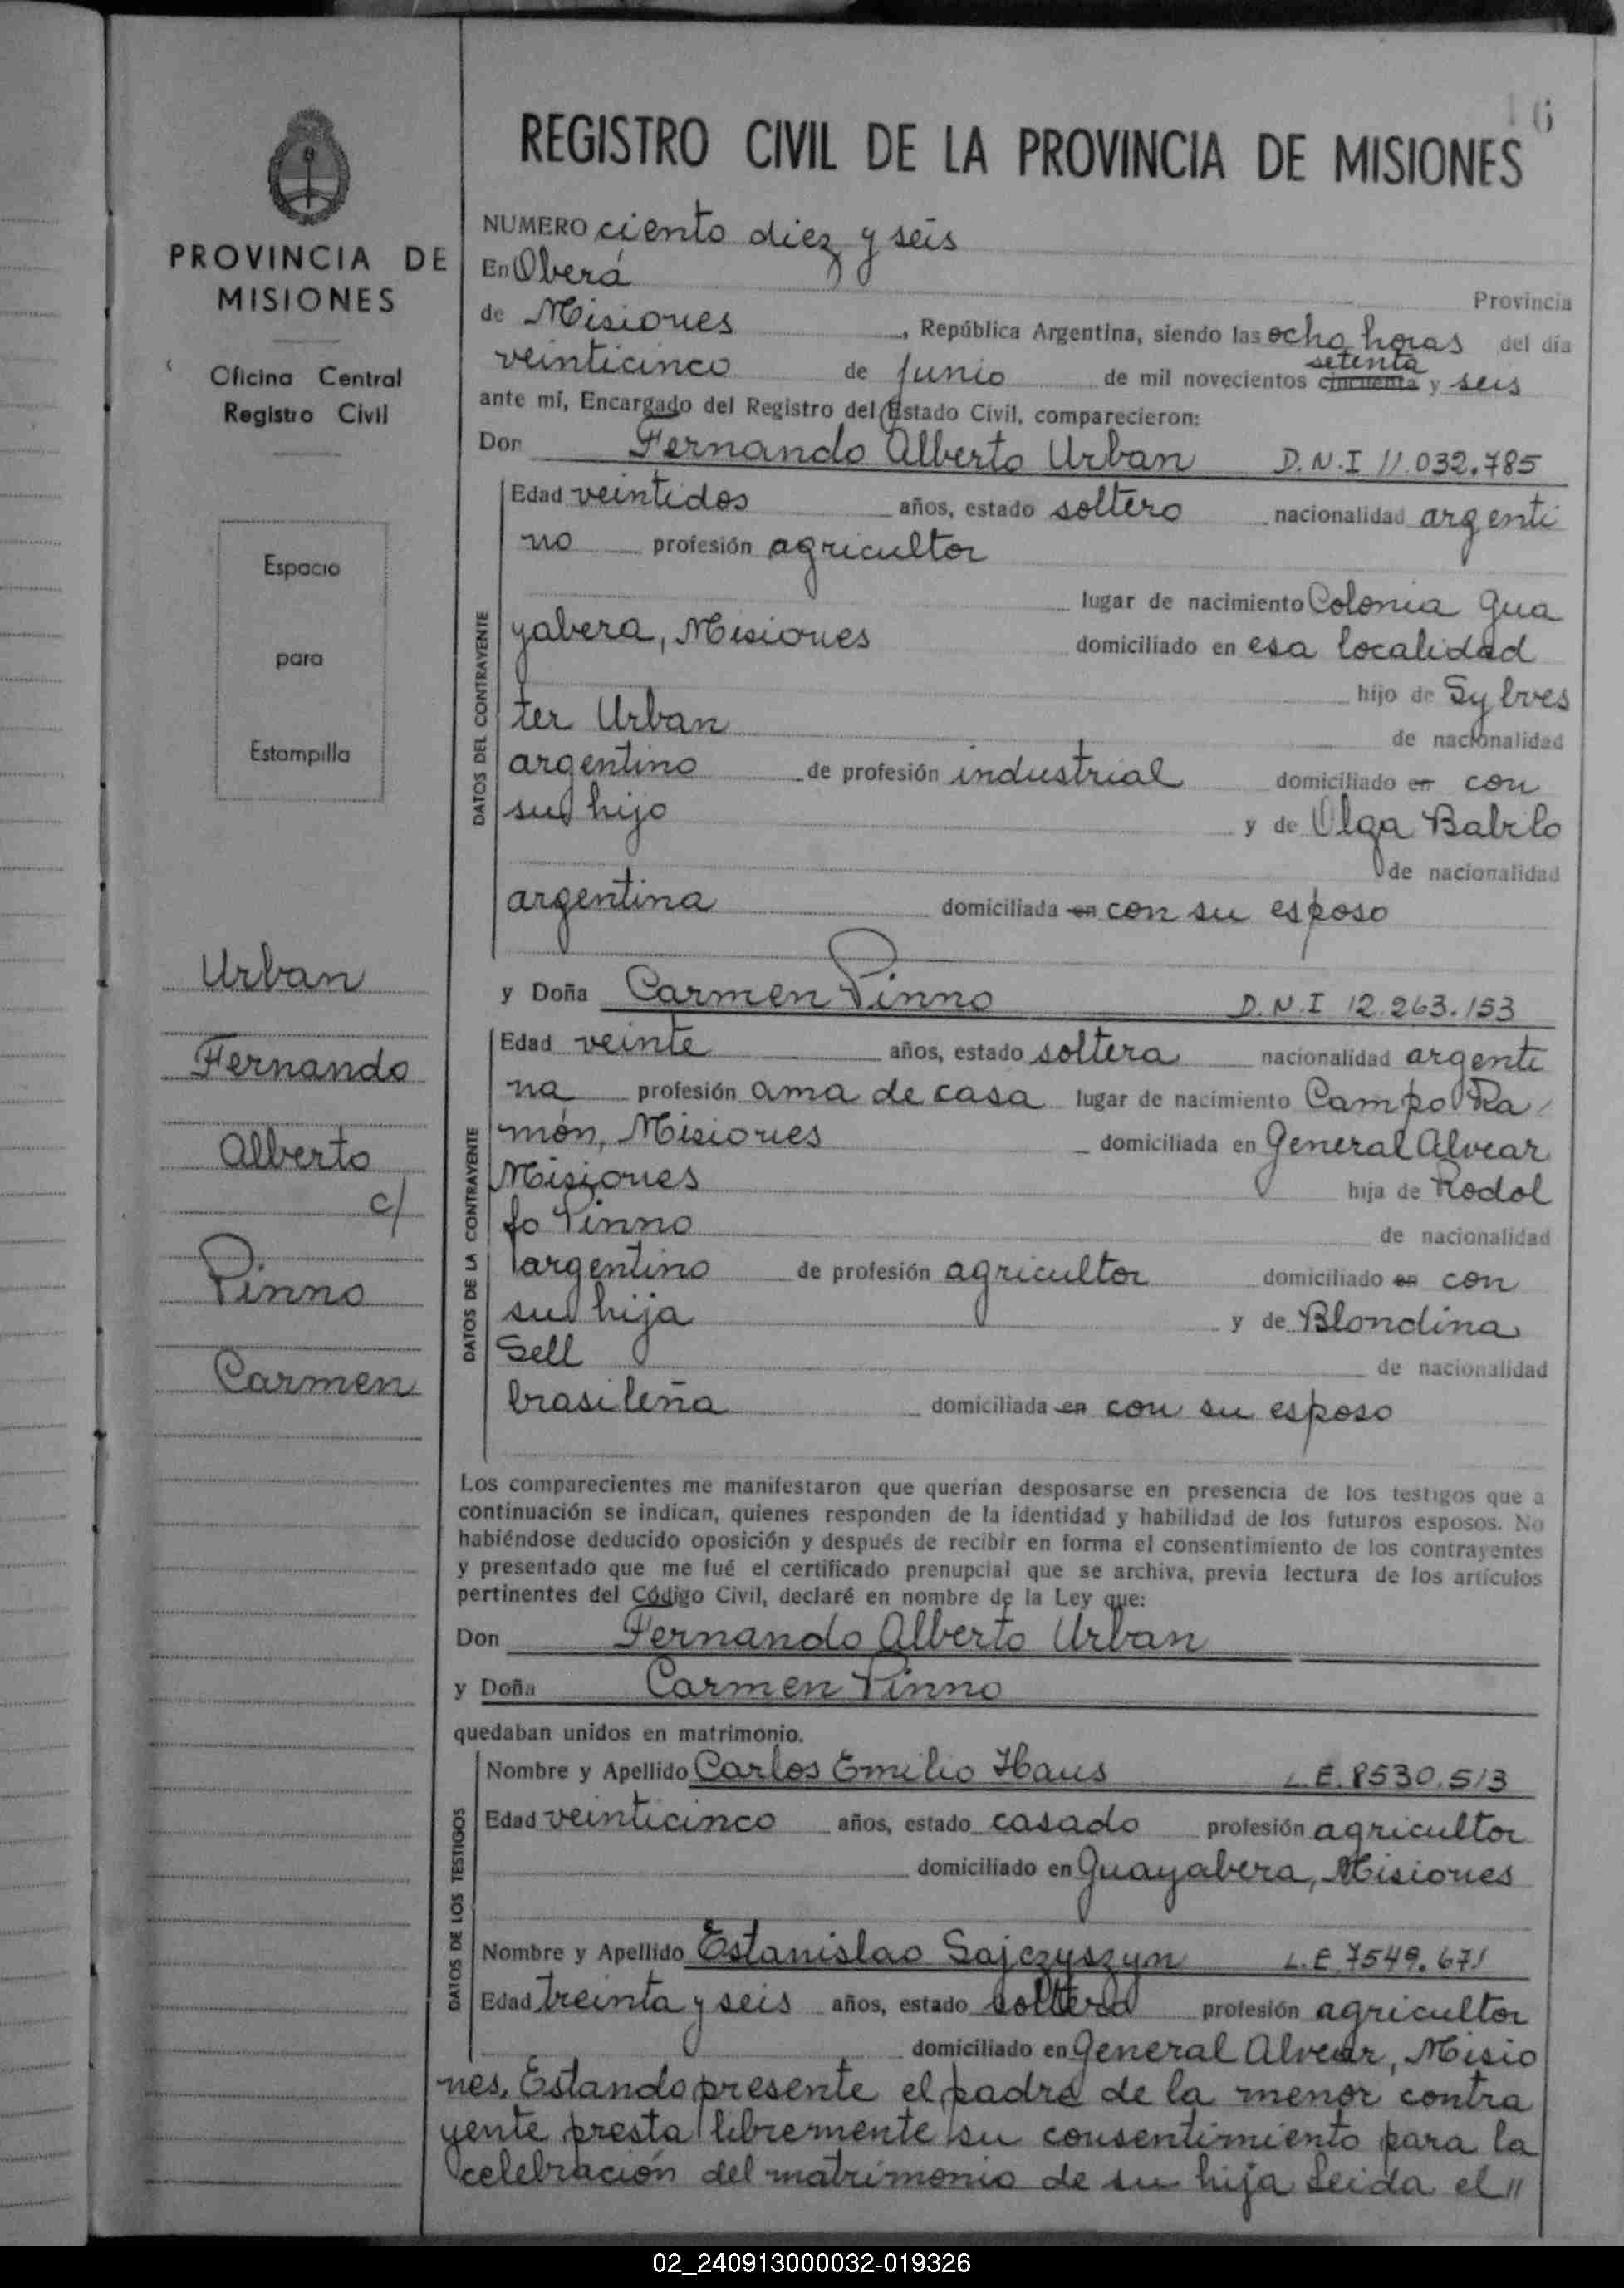 16
REGISTRO CIVIL DE LA PROVINCIA DE MISIONES
PROVINCIA DE
MISIONES
Oficina Central
Registro Civil
Espacio
para
Estampilla
Urban
Fernando
Alberto
c/
Pinno
Carmen
NUMERO ciento diez y seis
En Oberá
Provincia
de Misiones, República Argentina, siendo las ocho horas del día
setenta
veinticinco de Junio de mil novecientos cincuenta y seis
ante mí, Encargado del Registro del Estado Civil, comparecieron:
Don Fernando Alberto Urban D.N.I 11.032.785
DATOS DEL CONTRAYENTE
Edad veintidos años, estado soltero nacionalidad argenti
no profesión agricultor
lugar de nacimiento Colonia Gua
yabera, Misiones domiciliado en esa localidad
hijo de Sylves
ter Urban
de nacionalidad
argentino de profesión industrial domiciliado en con
su hijo y de Olga Babilo
de nacionalidad
argentina domiciliada en con su esposo
y Doña Carmen Pinno D.N.I 12.263.153
DATOS DE LA CONTRAYENTE
Edad veinte años, estado soltera nacionalidad argenti
na profesión ama de casa lugar de nacimiento Campo Ra
món, Misiones domiciliada en General Alvear
Misiones hija de Rodol
fo Pinno
de nacionalidad
argentino de profesión agricultor domiciliado en con
su hija y de Blondina
Sell
de nacionalidad
brasileña domiciliada en con su esposo
Los comparecientes me manifestaron que querían desposarse en presencia de los testigos que a
continuación se indican, quienes responden de la identidad y habilidad de los futuros esposos. No
habiéndose deducido oposición y después de recibir en forma el consentimiento de los contrayentes
y presentado que me fué el certificado prenupcial que se archiva, previa lectura de los artículos
pertinentes del Código Civil, declaré en nombre de la Ley que:
Don Fernando Alberto Urban
y Doña Carmen Pinno
quedaban unidos en matrimonio.
DATOS DE LOS TESTIGOS
Nombre y Apellido Carlos Emilio Haus L.E. 8530.513
Edad veinticinco años, estado casado profesión agricultor
domiciliado en Guayabera, Misiones
Nombre y Apellido Estanislao Sajczyszyn L.E. 7549.671
Edad treinta y seis años, estado soltero profesión agricultor
domiciliado en General Alvear, Misio
nes. Estando presente el padre de la menor contra
yente presta libremente su consentimiento para la
celebración del matrimonio de su hija Leida el //
02_240913000032-019326